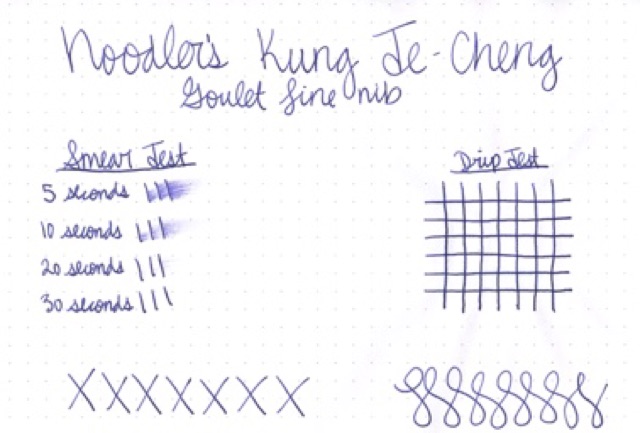 Noodler's Kung Te-Cheng
Goulet fine nib
Smear Test
5 seconds
10 seconds
20 seconds
30 seconds
Drip Test
XXXXXXX